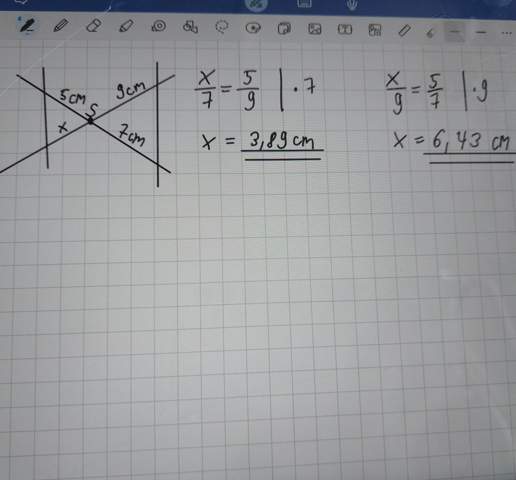 5cm
9cm
S
x
7cm
x/7 = 5/9 | · 7
x = 3,89 cm
x/9 = 5/7 | · 9
x = 6,43 cm